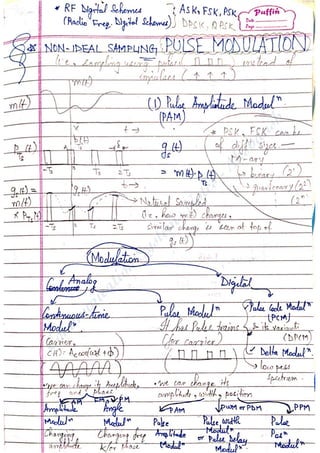 * RF Digital Schemes
(Radio Freq. Digital Schemes)
ASK, FSK, PSK
DPSK, QPSK
Puffin
Date
Page
NON-IDEAL SAMPLING; PULSE MODULATION
i.e. sampling using pulses instead of
impulses (↑ ↑ ↑)
m(t)
m(t)
(1) Pulse Amplitude Modulⁿ
(PAM)
t →
* PSK, FSK can be
of diff sizes
M-ary
→ binary (2¹)
→ quaternary (2²)
(2ⁿ)
P_Ts(t)
-Ts 0 Ts 2Ts
g_s(t)
= m(t)·p_Ts(t)
g_s(t) =
m(t)
× P_Ts(t)
-Ts 0 Ts 2Ts
→ Natural Sampled
(i.e. how m(t) changes.
similar change is seen at top of
g_s(t)
Modulation
Analog
Digital
Continuous-time
Modulⁿ
Pulse Modulⁿ
Pulse Code Modulⁿ
(PCM)
It has Pulse trains
(for carrier)
& its variant
(DPCM)
Carrier.
C(t) = Ac cos(ωt+φ)
→ Delta Modulⁿ
→ low pass
spectrum.
• we can change its Amplitude,
freq and phase
• we can change its
amplitude, width, position
AM
FM
PM
PAM
PWM or PDM
PPM
Amplitude
Angle
Pulse
Pulse Width
Pulse
Modulⁿ
Modulⁿ
Amplitude
Modulⁿ
Posⁿ
Changing
Changing freq
Modulⁿ
or Pulse Delay
Modulⁿ
amplitude
&/or phase
Modulⁿ